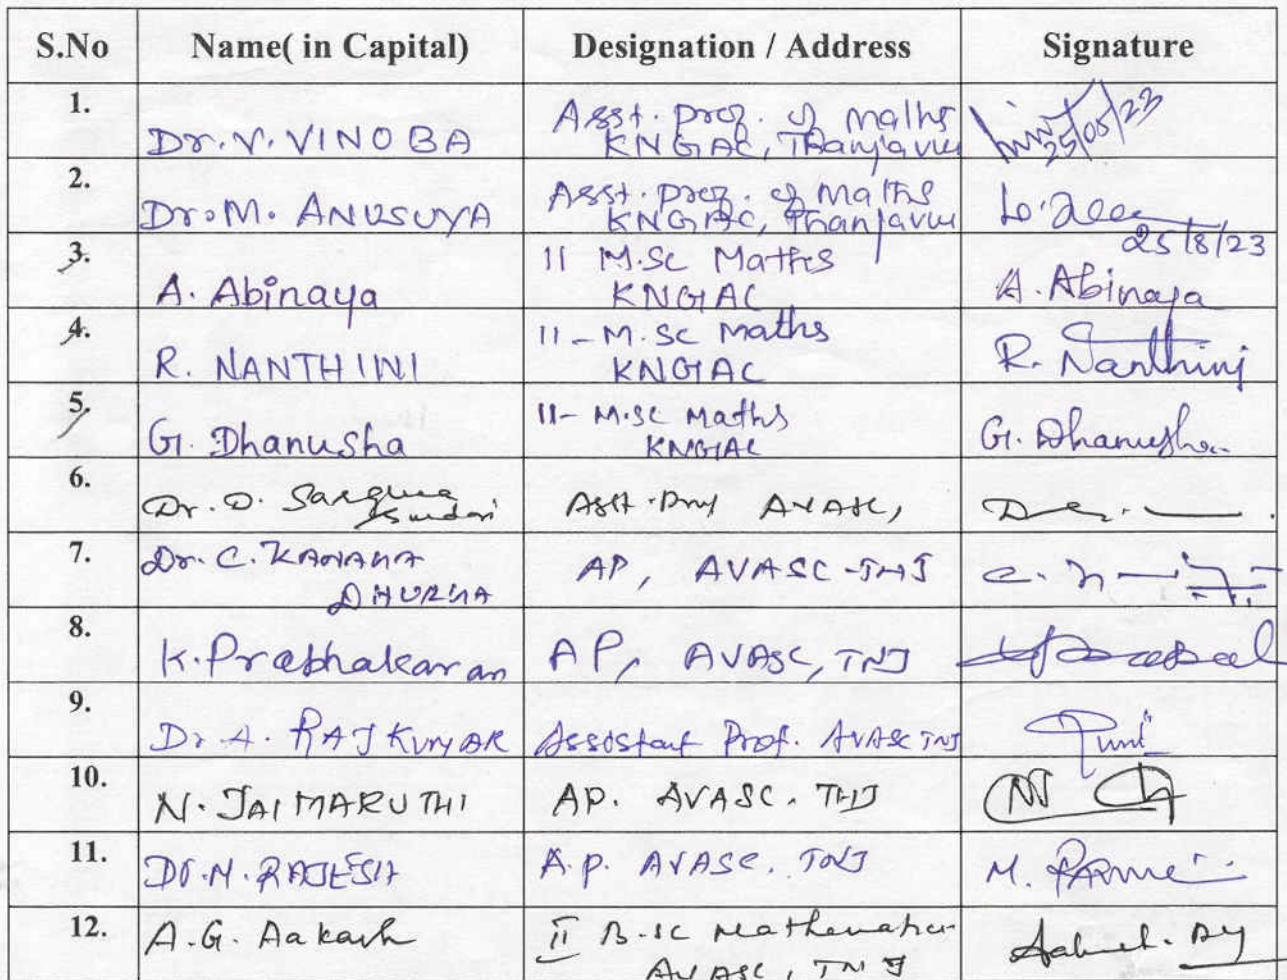 S.No Name( in Capital) Designation / Address Signature
1. Dr. V. VINOBA Asst. prof. of maths
KNGAC, Thanjavur 25/08/23
2. Dr. M. ANUSUYA Asst. prof. of Maths
KNGAC, Thanjavur 25/8/23
3. A. Abinaya II M.Sc Maths
KNGAC A. Abinaya
4. R. NANTHINI II - M.Sc Maths
KNGAC R. Nanthini
5. G. Dhanusha II - M.Sc Maths
KNGAC G. Dhanusha
6. Dr. D. Asst. Prof AVASC,
7. Dr. C. KANAKA
DHURGA AP, AVASC-TNJ
8. K. Prabhakaran AP, AVASC, TNJ
9. Dr A. RAJKUMAR Assistant Prof. AVASC TNJ
10. N. JAIMARUTHI AP. AVASC. THJ
11. Dr. N. RAJESH A.p. AVASC. TNJ
12. A.G. Aakash II B.sc Mathematics
AVASC, TNJ